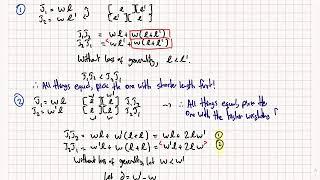 ① J₁ = wl } [ l ][ l' ]
J₂ = wl' [ l' ][ l ]
J₁J₂ = wl + w(l+l')
J₂J₁ = wl' + w(l+l')
Without loss of generality, l < l'.
J₁J₂ < J₂J₁
∴ All things equal, pick the one with shorter length first!
② J₁ = wl [ l ][ l ] J₁J₂
J₂ = w'l [ l ][ l ] J₂J₁
→ ∴ All things equal, pick the one with the higher weighting
J₁J₂ = wl + w'(l+l) = wl + 2lw' ①
J₂J₁ = w'l + w(l+l) = w'l + 2lw ②
Without loss of generality, let w < w'
Let ∂ = w' - w